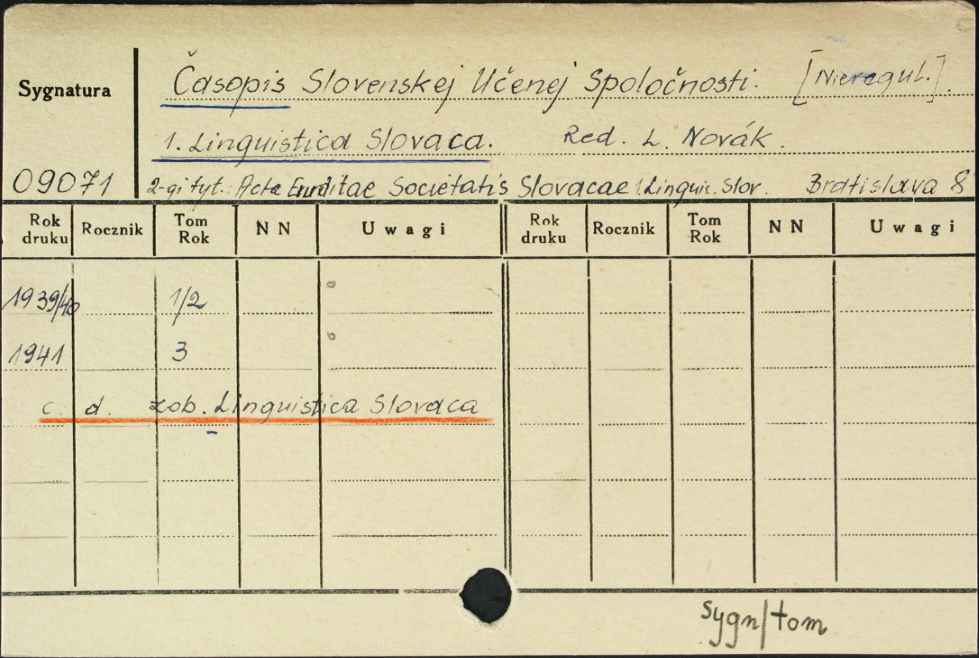 Časopis Slovenskej Učenej Spoločnosti. [Nieregul.].
Sygnatura
1. Linguistica Slovaca. Red. L. Novák.
09071 2-gi tyt.: Acta Eruditae Societatis Slovacae: Linguic. Slov. Bratislava 8
Rok druku Rocznik Tom Rok NN Uwagi Rok druku Rocznik Tom Rok NN Uwagi
1939/40 1/2
1941 3
c. d. zob. Linguistica Slovaca
sygn/tom